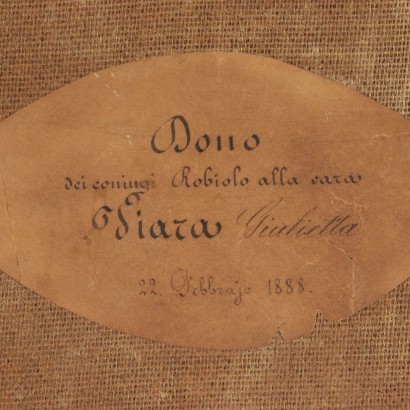 Dono
dei coniugi Robiolo alla cara
Tiara Giulietta
22. Febbrajo 1888.